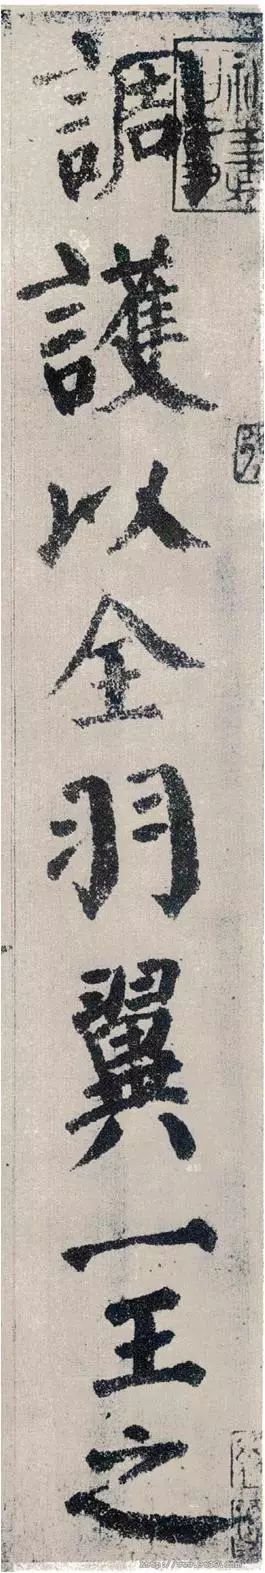 調護以全羽翼一王之